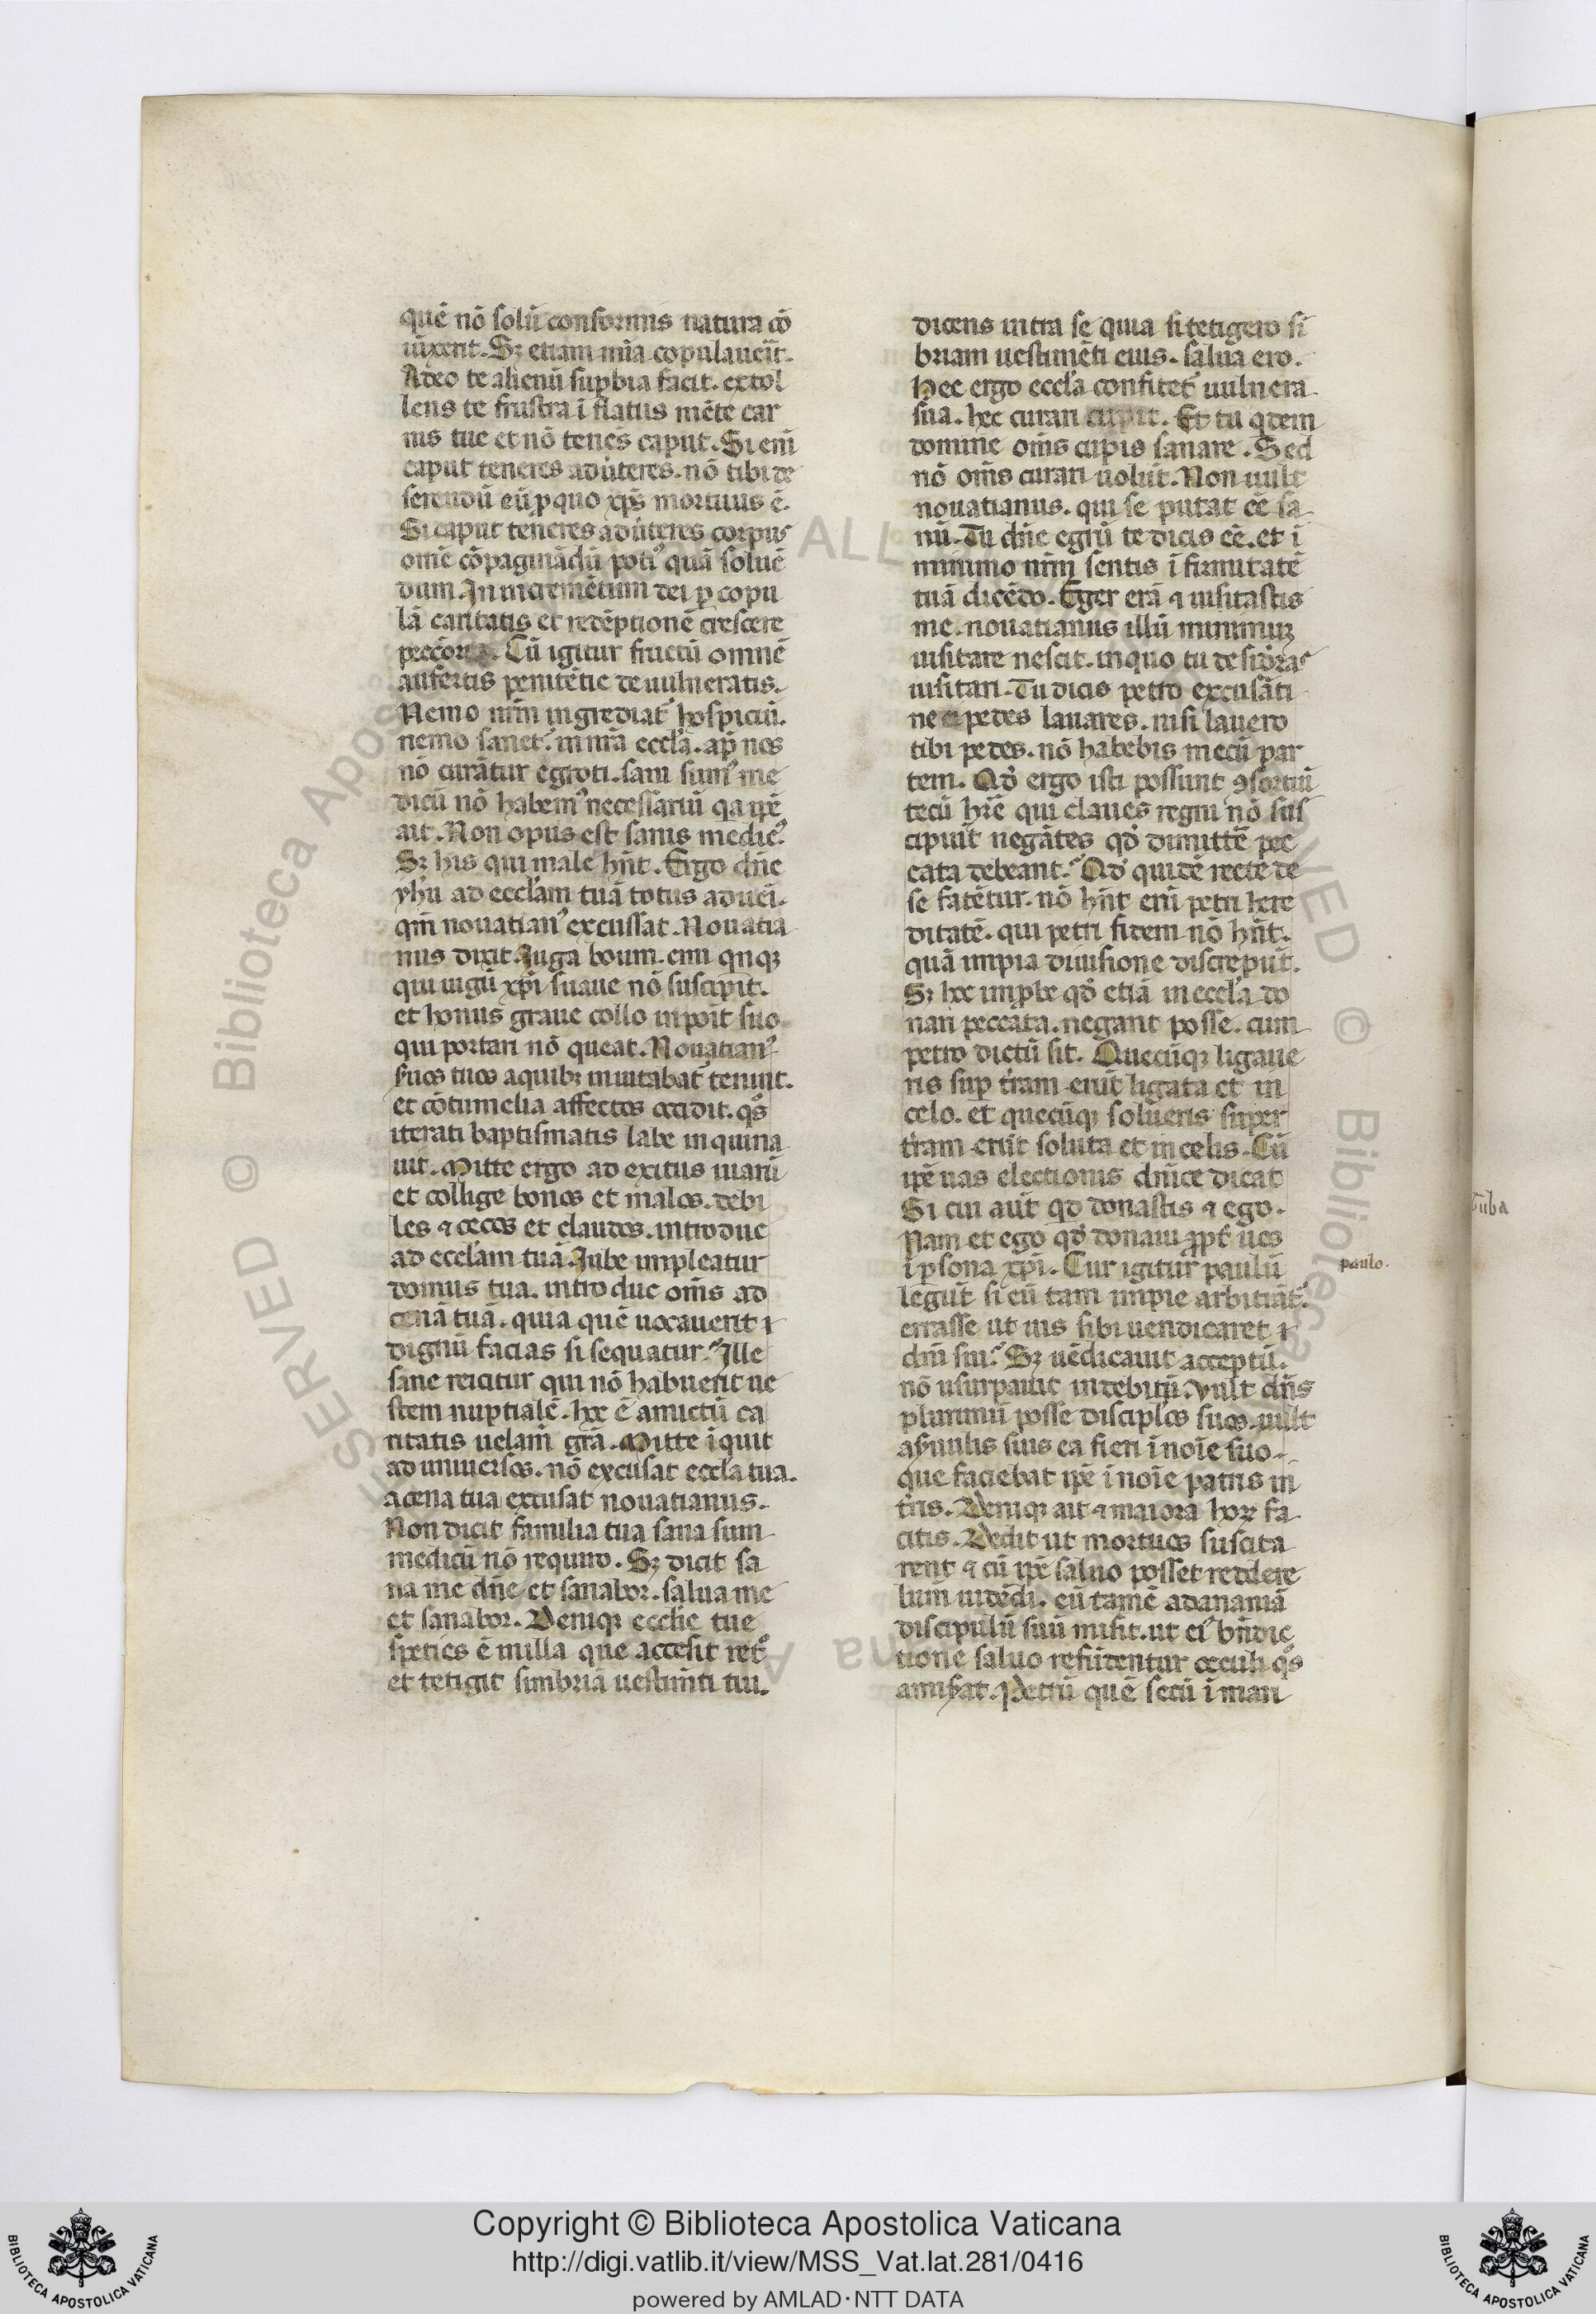 quē nō solū conformis natura cō
iūxerit. Sꝫ etiam mīa copulauerit.
Adeo te alienū supbia facit. extol
lens te frustra ī flatus mēte car
nis tue et nō tenēs caput. Si enī
caput teneres adūteres. nō tibi de
serendū eū ꝑ quo xp̄s mortuus ē.
Si caput teneres adūteres corpus
omē cōpaginādū poti᷒ quā soluē
dum. In incremētum dei ꝑ copu
lā caritatis et redēptionē crescere
Cū igitur fructū omnē
aufertis penitētie de uulneratis.
Nemo nr̄m ingrediat᷑ hospiciū.
nemo sanet᷑ in nr̄a eccl'a. ap̄ nos
nō curātur egroti. sani sum᷒ me
dicū nō habem᷒ necessariū qa ip̄e
ait. Non opus est sanis medic᷒
Sꝫ his qui male hn̄t. Ergo dn̄e
yhu ad eccl'am tuā totus adueī.
qm̄ nouatian᷒ excussat. Nouatia
nus dixit. Juga boum. emi qnqꝫ
qui iugū xp̄i suaue nō suscipit.
et honus graue collo inpoīt suo
qui portari nō queat. Nouatian᷒
ẜuos tuos a quibꝫ inuitabat᷑ tenuit.
et cōtumelia affectos occidit. qͦs
iterati baptismatis labe inquina
uit. Mitte ergo ad exitus uiarū
et collige bonos et malos. debi
les ⁊ cecos et claudos. introduc
ad eccl'am tuā. Jube impleatur
domus tua. introduc om̄s ad
cenā tuā. quia quē uocauerit
dignū facias si sequatur. Ille
sane reicitur qui nō habuerit ue
stem nuptialē. hoc ē amictū ca
ritatis uelam̄ grā. Mitte īquit
ad uniuersos. nō excusat eccl'a tua.
a cena tua excusat nouatianus.
Non dicit familia tua sana sum
medicū nō requiro. Sꝫ dicit sa
na me dn̄e et sanabor. salua me
et sanabor. Deniqꝫ eccl'ie tue
species ē milla que accesit ret᷒
et tetigit fimbriā uestim̄ti tui.
dicens intra se quia si tetigero fi
briam uestimēti eius. salua ero.
hec ergo eccl'a confitet᷑ uulnera
sua. hec curari cupit. Et tu qdem
domine om̄s cupis sanare. Sed
nō om̄s curari uolūt. Non uult
nouatianus. qui se putat eē sa
nū. Tu dn̄e egrū te dicis eē. et ī
minimo nr̄m sentis ī firmitatē
tuā dicēdo. Eger erā ⁊ uisitastis
me. nouatianus illū minimuꝫ
uisitare nescit. in quo tu desideras
uisitari. Tu dicis petro excusāti
ne pedes lauares. nisi lauero
tibi pedes. nō habebis mecū par
tem. Qd̓ ergo isti possunt ꝯsortiū
tecū hr̄e qui claues regni nō sus
cipiūt negātes qd̓ dimittē pec
cata debeant. Qd̓ quidē recte de
se fatētur. nō hn̄t enī petri here
ditatē. qui petri fidem nō hn̄t.
quā impia diuisione discerpūt.
Sꝫ hoc improbe qd̓ etiā in eccl'a do
nari peccata. negant posse. cum
petro dictū sit. Quecūqꝫ ligaue
ris sup tr̄am erūt ligata et in
celo. et quecūqꝫ solueris super
tr̄am erūt soluta et in celis. Cū
ip̄e uas electionis dn̄ice dicat
Si cui aūt qd donastis ⁊ ego.
Nam et ego qd̓ donaui ꝓpt̓ uos
ī ꝑsona xp̄i. Cur igitur paulū
legūt si eū tam impie arbitrāt᷑
errasse ut ius sibi uendicaret
dn̄i sui. Sꝫ uēdicauit acceptū.
nō usurpauit indebitū. Vult dn̄s
plurimū posse discipl'os suos. uult
a ẜuulis suis ea fieri ī noīe suo.
que faciebat ip̄e ī noīe patris in
tris. Deniqꝫ ait ⁊ maiora hoꝝ fa
citis. Dedit ut mortuos suscita
rent ⁊ cū ip̄e saulo posset reddere
lum̄ uidēdi. eū tamē ad ananiā
discipulū suū misit. ut ei᷒ bn̄dic
tione saulo refūderentur occuli qͦs
amiserat. Petrū quē secū ī mari
paulo.
tuba
Copyright © Biblioteca Apostolica Vaticana
http://digi.vatlib.it/view/MSS_Vat.lat.281/0416
powered by AMLAD·NTT DATA